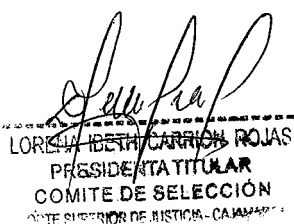 LORENA IBETH CARRION ROJAS
PRESIDENTA TITULAR
COMITE DE SELECCIÓN
CORTE SUPERIOR DE JUSTICIA - CAJAMARCA